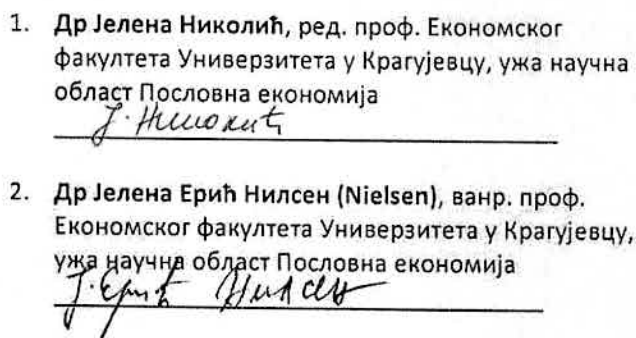 1. Др Јелена Николић, ред. проф. Економског
факултета Универзитета у Крагујевцу, ужа научна
област Пословна економија
Ј. Николић
2. Др Јелена Ерић Нилсен (Nielsen), ванр. проф.
Економског факултета Универзитета у Крагујевцу,
ужа научна област Пословна економија
Ј. Ерић Нилсен